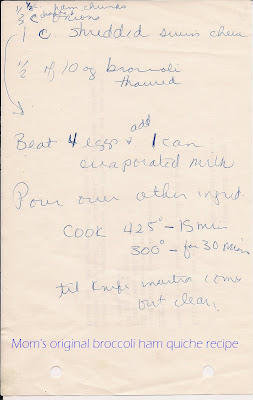 ham chunks
1/3 c onions
1 c shredded swiss chees
1/2 of 10 oz broccoli
thawed
Beat 4 eggs & add 1 can
evaporated milk
Pour over other ingred
Cook 425° - 15 min
300° - for 30 mins
til knife inserted comes
out clean.
Mom's original broccoli ham quiche recipe